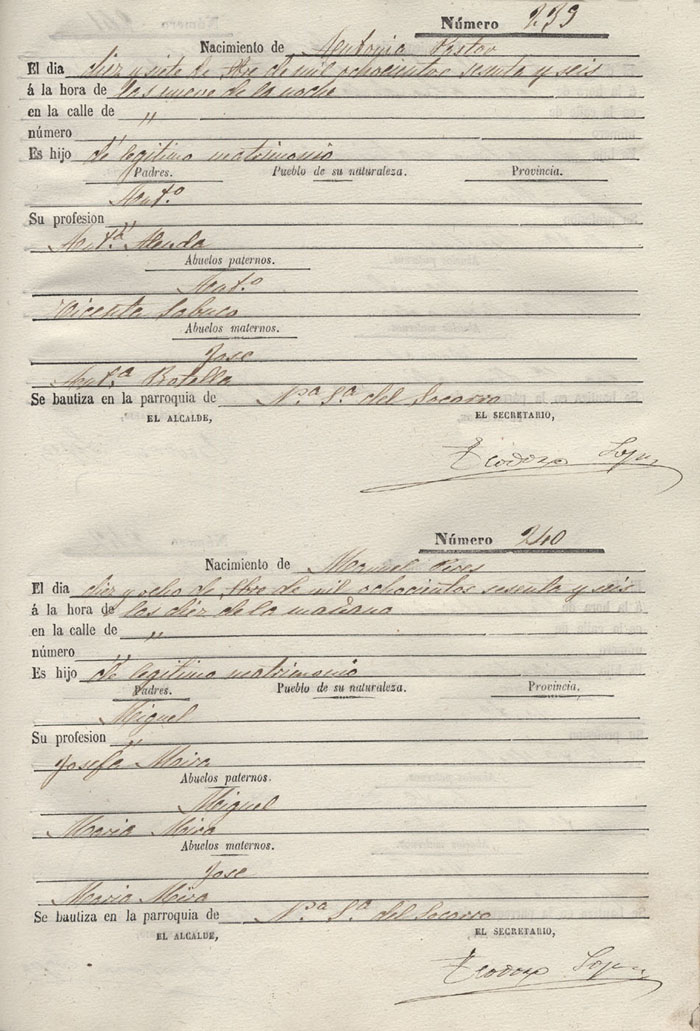 Número 239
Nacimiento de Antonia Pastor
El dia diez y siete de 8bre de mil ochocientos sesenta y seis
á la hora de las nueve de la noche
en la calle de "
número "
Es hijo de legitimo matrimonio
Padres. Pueblo de su naturaleza. Provincia.
Ant.º
Su profesion "
Ant.ª Aznar
Abuelos paternos.
Ant.º
Vicenta Sabuco
Abuelos maternos.
Jose
Ant.ª Botella
Se bautiza en la parroquia de N.ª S.ª del Socorro
EL ALCALDE, EL SECRETARIO,
Teodoro Lopez
Número 240
Nacimiento de Manuel Pires
El dia diez y ocho de 8bre de mil ochocientos sesenta y seis
á la hora de las diez de la mañana
en la calle de "
número "
Es hijo de legitimo matrimonio
Padres. Pueblo de su naturaleza. Provincia.
Miguel
Su profesion "
Josefa Moira
Abuelos paternos.
Miguel
Maria Mira
Abuelos maternos.
Jose
Maria Mira
Se bautiza en la parroquia de N.ª S.ª del Socorro
EL ALCALDE, EL SECRETARIO,
Teodoro Lopez